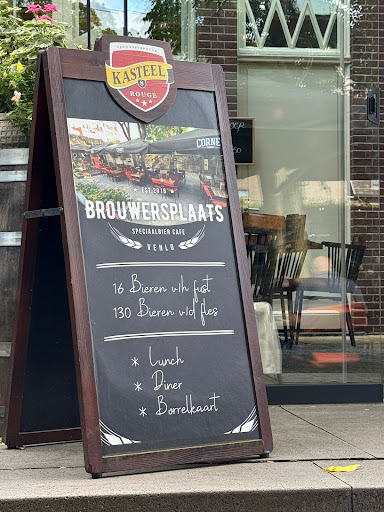 KASTEEL
ROUGE
CORNE
EST 2018
BROUWERSPLAATS
SPECIAALBIER CAFE
VENLO
16 Bieren v/h fust
130 Bieren v/d fles
* Lunch
* Diner
* Borrelkaart